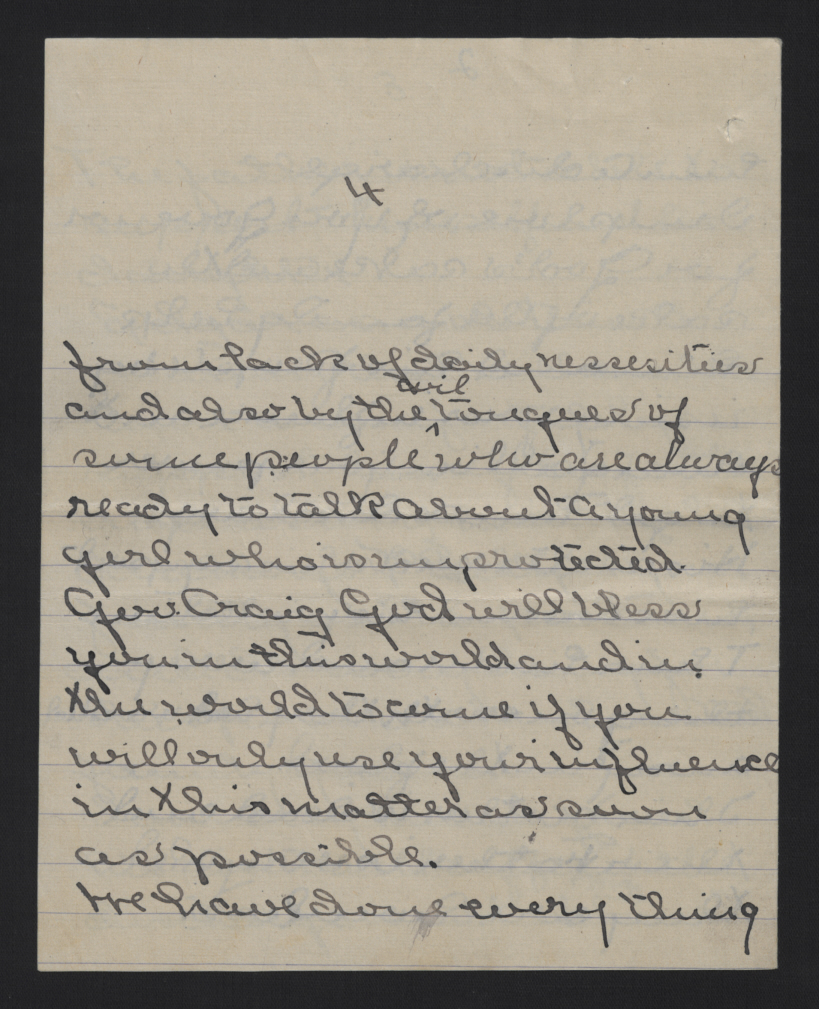 4
from lack of daily nessesities
evil
and also by the ^ tongues of
some people who are always
ready to talk about a young
girl who is unprotected.
Gov. Craig God will bless
you in this world and in
the world to come if you
will only use your influence
in this matter as soon
as possible.
We have done every thing